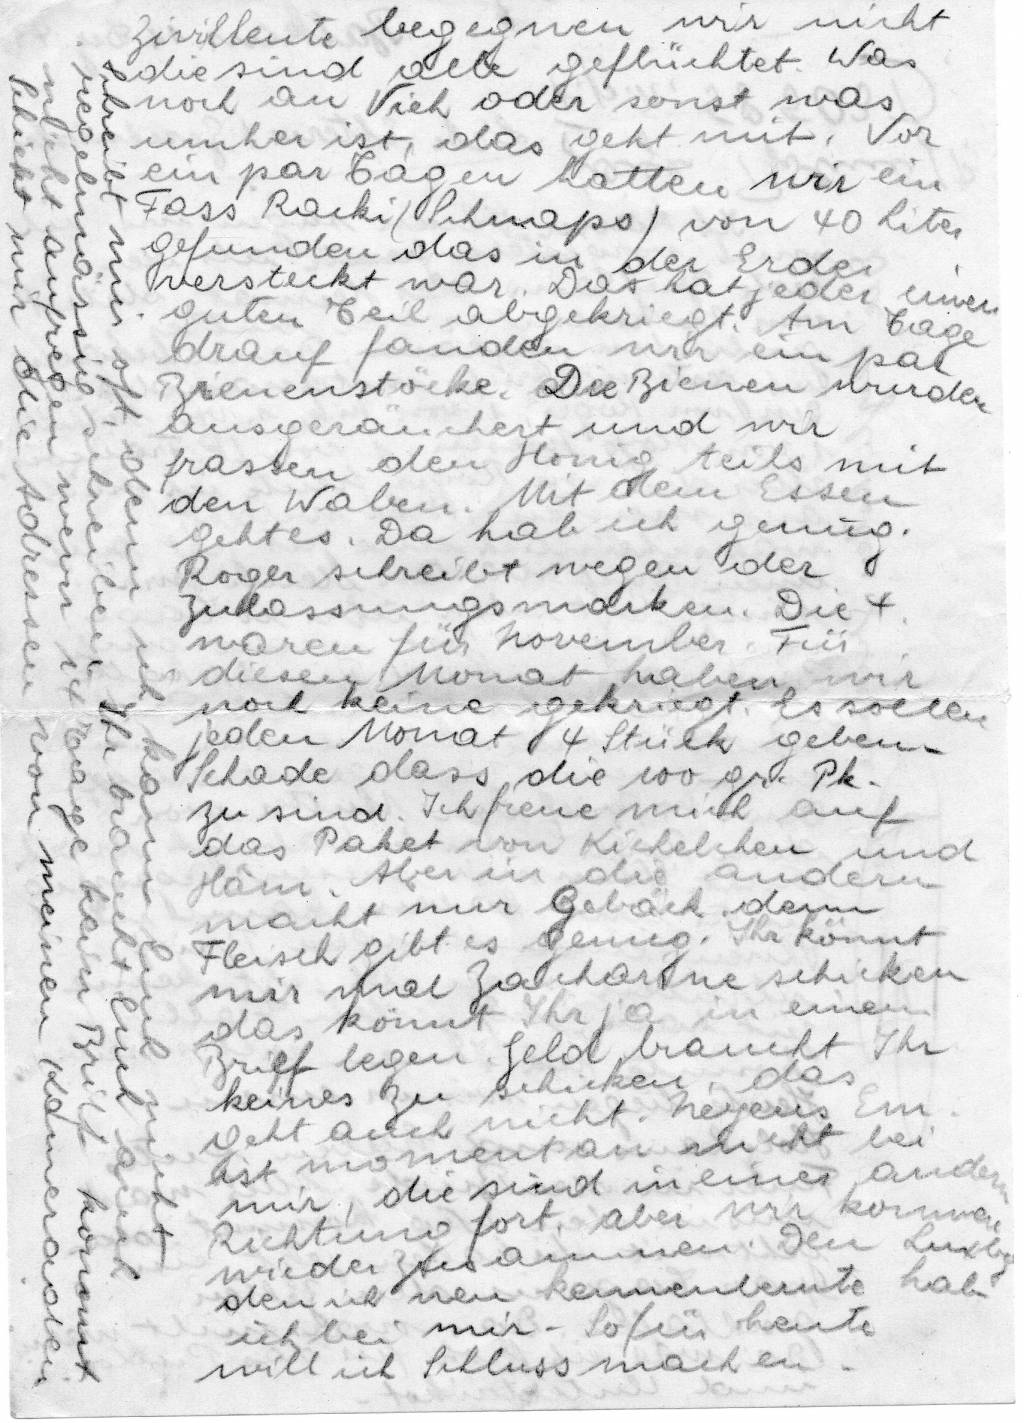 Zivilleute begegnen wir nicht
die sind alle geflüchtet. Was
noch an Vieh oder sonst was
umher ist, das geht mit. Vor
ein par Tagen hatten wir ein
Fass Racki (Schnaps) von 40 Liter
gefunden das in der Erde
versteckt war. Das hat jeder einen
guten Teil abgekriegt. Am Tage
drauf fanden wir ein par
Bienenstöcke. Die Bienen wurden
ausgeräuchert und wir
frassen den Honig teils mit
den Waben. Mit dem Essen
geht es. Da hab ich genug.
Roger schreibt wegen der
Zulassungsmarken. Die 4
waren für November. Für
diesen Monat haben wir
noch keine gekriegt. Es sollen
jeden Monat 4 Stück geben
Schade dass die 100 gr. Pk.
zu sind. Ich freue mich auf
das Paket von Kichelchen und
Häm. Aber in die andern
macht nur Gebäck denn
Fleisch gibt es genug. Ihr könnt
mir mal Zacharine schicken
das könnt Ihr ja in einen
Brief legen. Geld braucht Ihr
keines zu schicken, das
geht auch nicht. Neyens Em.
ist momentan nicht bei
mir, die sind in einer andern
Richtung fort, aber wir kommen
wieder zusammen. Den Luxbg
den ich neu kennenlernte hab
ich bei mir - So für heute
will ich Schluss machen.
Schreibt nur oft, denn ich kann Euch nicht
regelmässig schreiben. Ihr braucht Euch auch
nicht aufregen wenn 14 Tage kein Brief kommt
Schickt mir die Adressen von meinen Kameraden